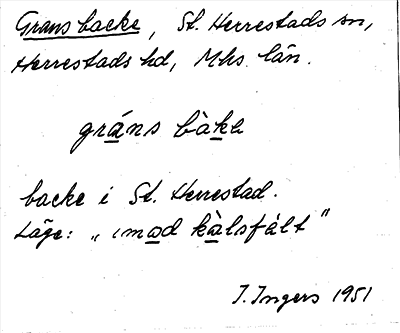 Grans backe, St. Herrestads sn,
Herrestads hd, Mhs. län.
gráns bàkə
backe i St. Herrestad.
Läge: „ mod kàlsfált”
I. Ingers 1951